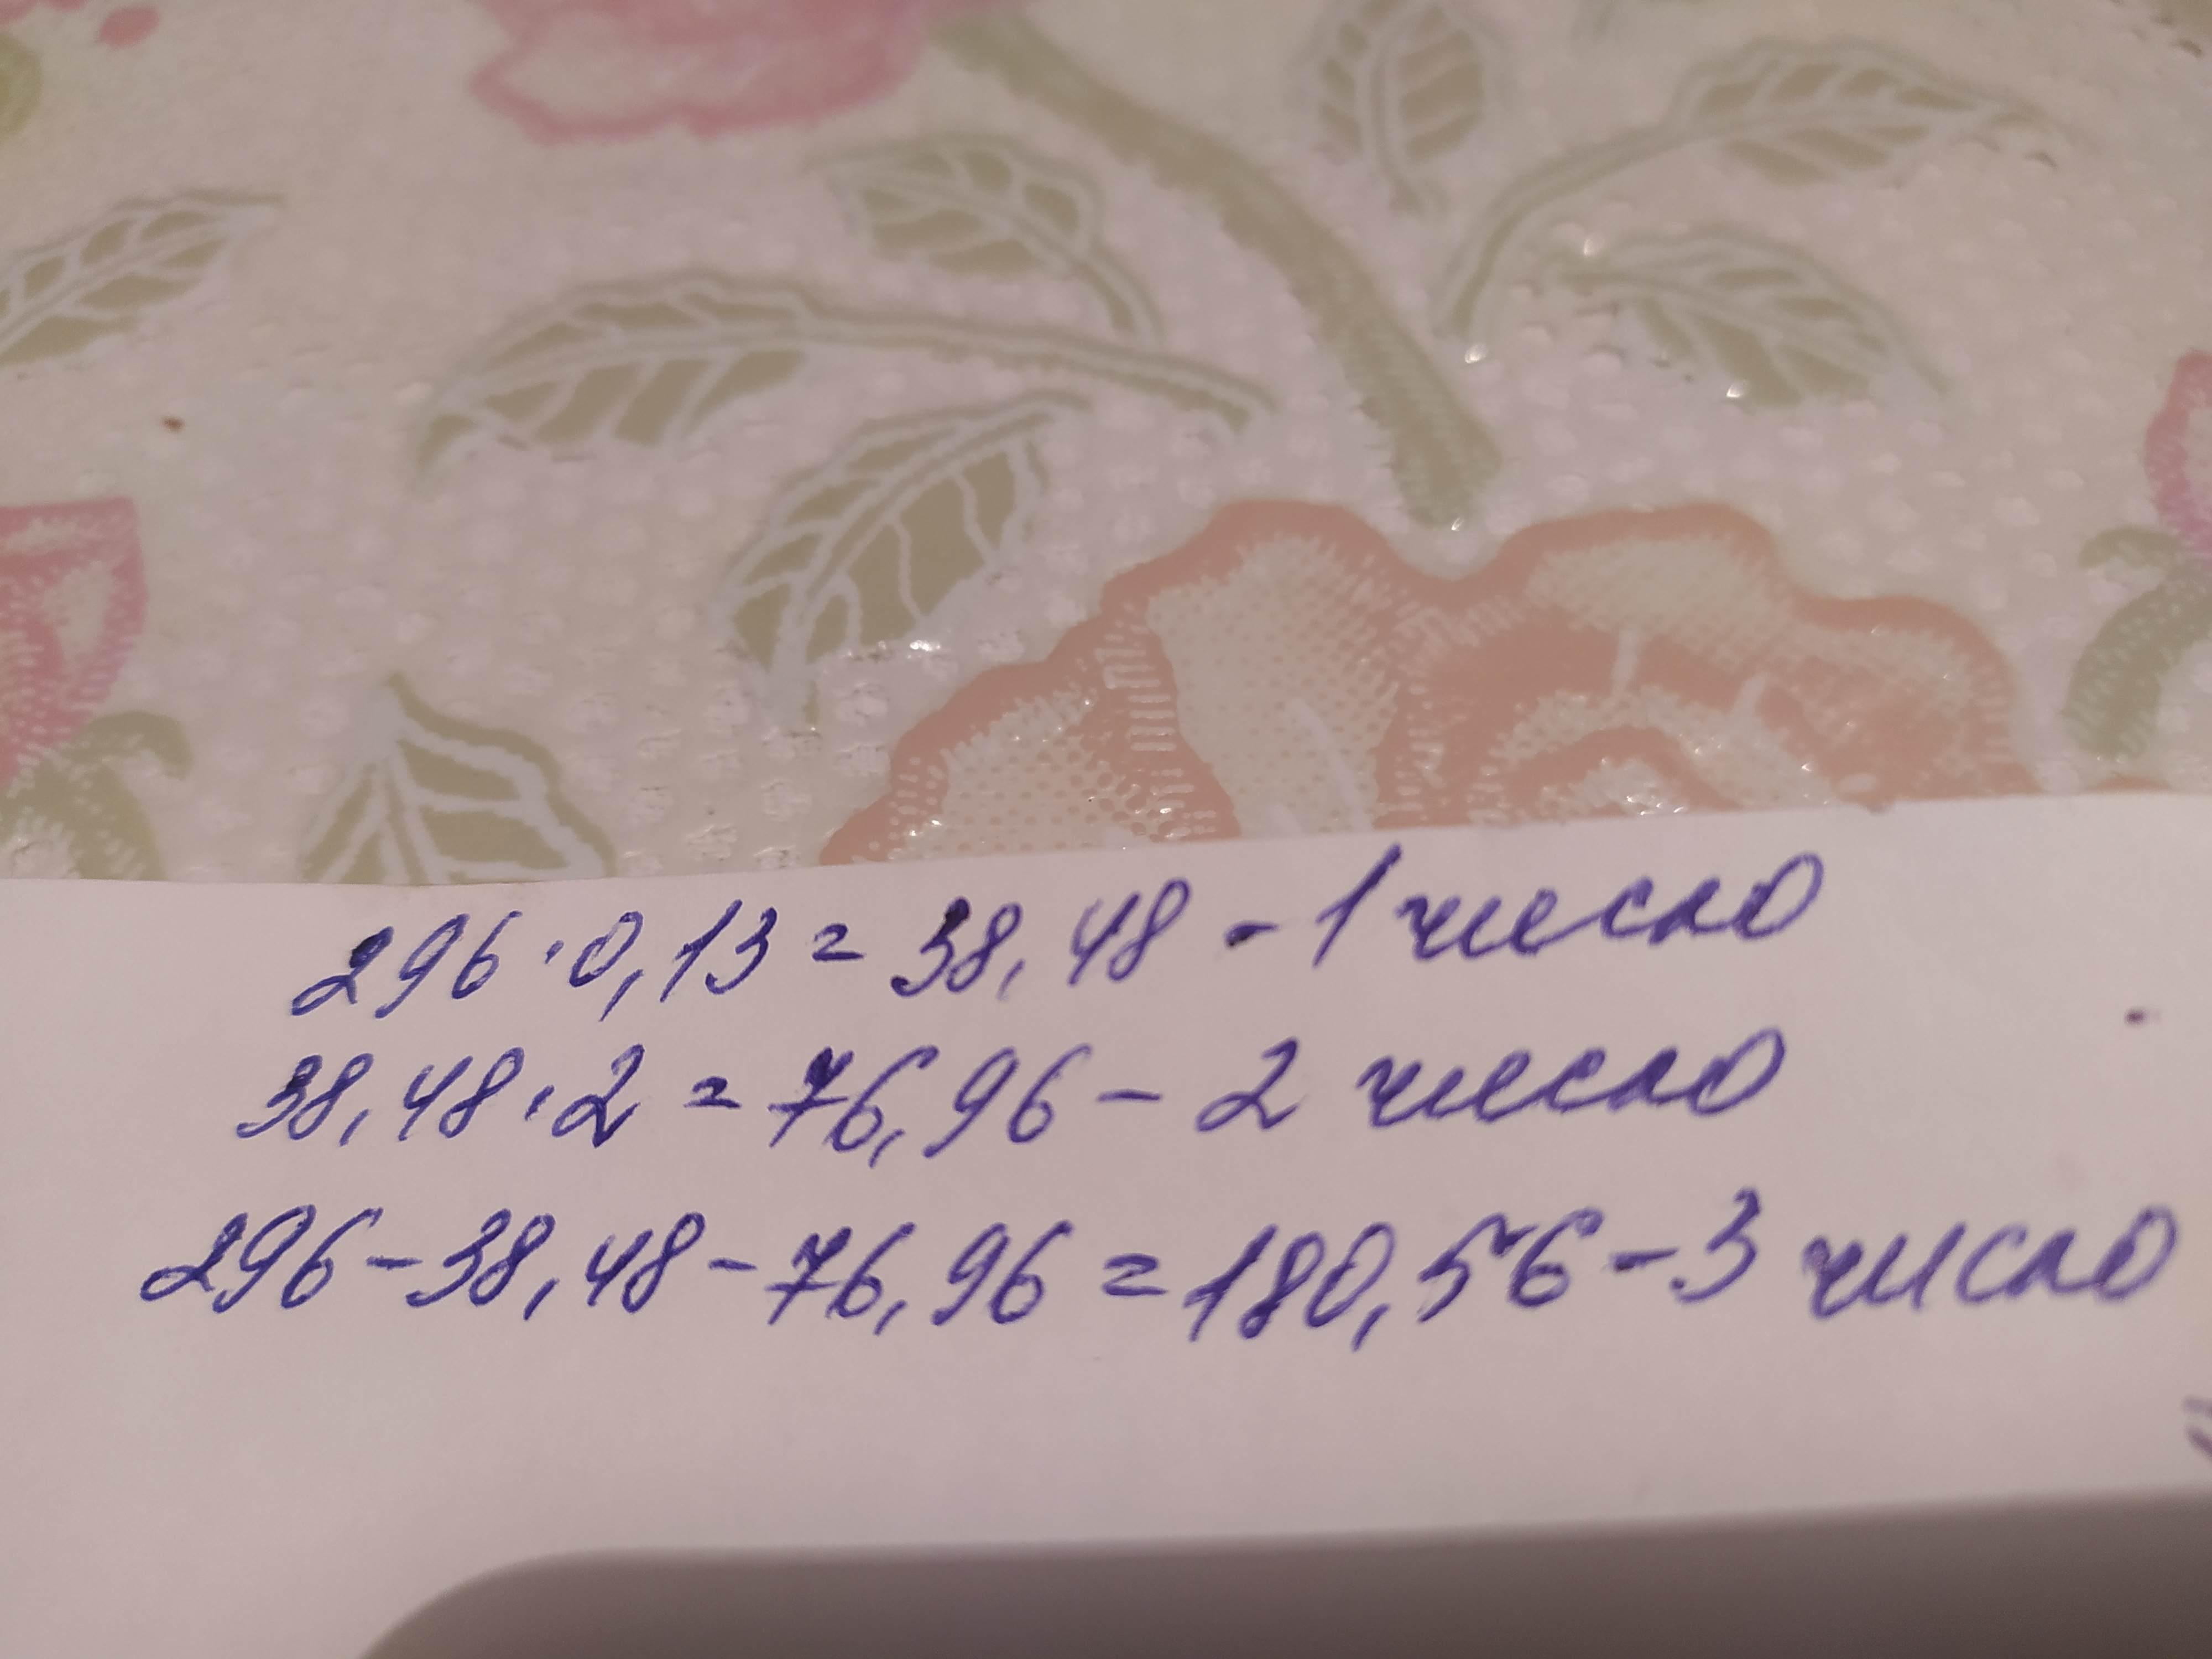 296·0,13=38,48-1 число
38,48·2=76,96-2 число
296-38,48-76,96=180,56-3 число